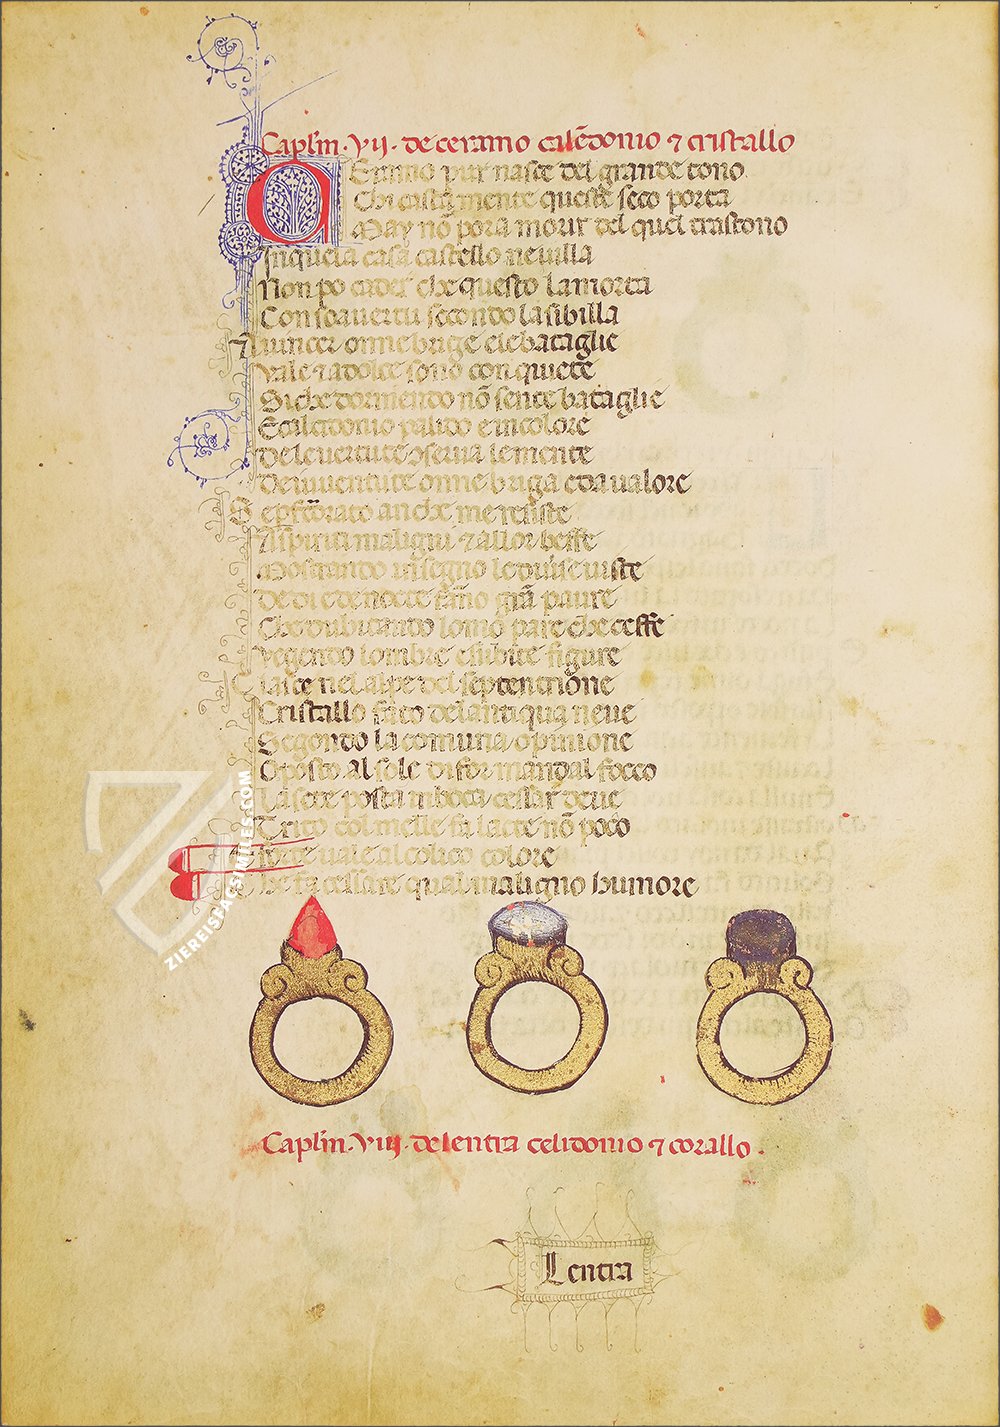 Caplm̄ · VII · de ceranno calcēdonio ⁊ cristallo
CEranno pur nasce del grande tono
Chi castamente queste seco porta
May nō pora morir del quel trastono
In quela casa castello ne villa
Non po cader che questo la morta
Con soa vertu secondo la sibilla
A vincer onne brige e le bataglie
Vale ⁊ a dolce sono con quiete
Si che dormendo nō sente bataglie
E calcidonio palido e in colore
De le vertute ɔserva le mente
De iuventute onne briga e da valore
E pforato anche me resiste
A spiriti maligni ⁊ allor beffe
Mostrando in segno le duise viste
De di e de nocte fāno grā paure
Che dubitando lomo pare che ceffe
Vegendo lombre e subite figure
Nasce nel alpe del septentrione
Cristallo facto del antiqua neve
Segondo la comuna opinione
Oposto al sole di for manda l focco
La sete posta in boca cessar deve
Trito col melle fa lacte nō poco
Forte vale al colico colore
He fa cessare qual maligno humore
Caplm̄ · VIII · de lentra celidonio ⁊ corallo ·
Lentra
ZIEREISFACSIMILES.COM